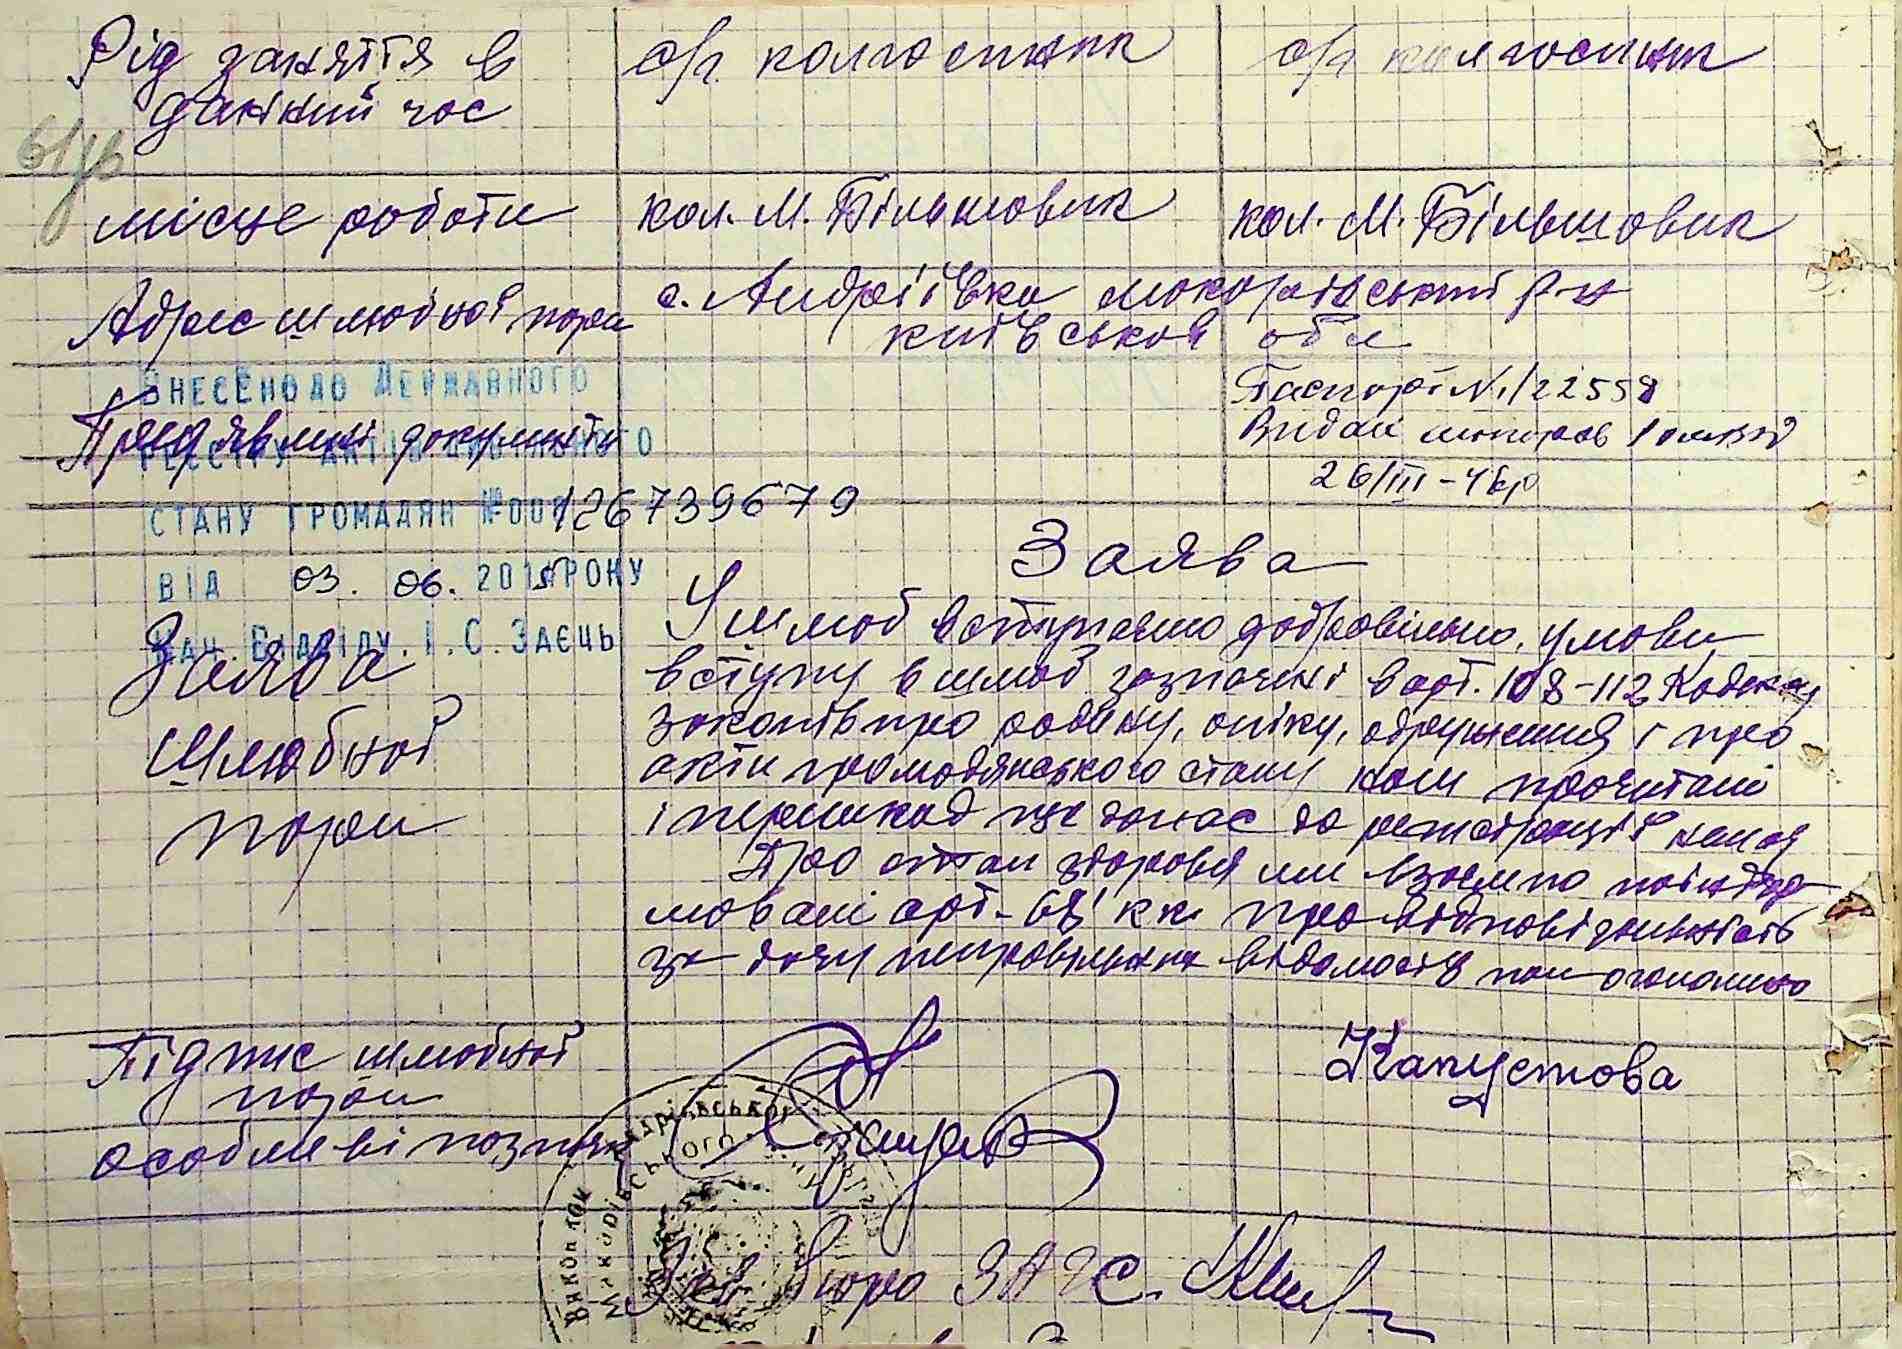 Рід заняття в с/г. колгоспник с/г колгоспник
даний час
місце роботи кол. М. Більшовик кол. М. Більшовик
Адрес шлюбної пари с. Андріївка макарівський р-н
київської обл
Пред'явлені документи Паспорт №
Видай
26/III-46р
ВНЕСЕНО ДО ДЕРЖАВНОГО
РЕЄСТРУ АКТІВ ЦИВІЛЬНОГО
СТАНУ ГРОМАДЯН № 00126739679
ВІД 03. 06. РОКУ
НАЧ. ВІДДІЛУ. І. С. ЗАЄЦЬ
Заява
Шлюбної
пари
Заява
У шлюб вступаємо добровільно, умови
вступу в шлюб зазначені в арт. 108-112 Кодексу
законів про родину, опіку, одруження і про
акти громадянського стану нам прочитані
і перешкод щодо нас до реєстрації немає
Про стан здоровя ми взаємно поінфор
мовані арт. 68 к.к. про відповідальність
за дачу неправильних відомостей нам оголошено
Підпис шлюбної Капустова
пари
особливі познаки
АНДРІЇВСЬКОГО
МАКАРІВСЬКОГО
ВИКОНКОМ
Зав. бюро ЗАГС.